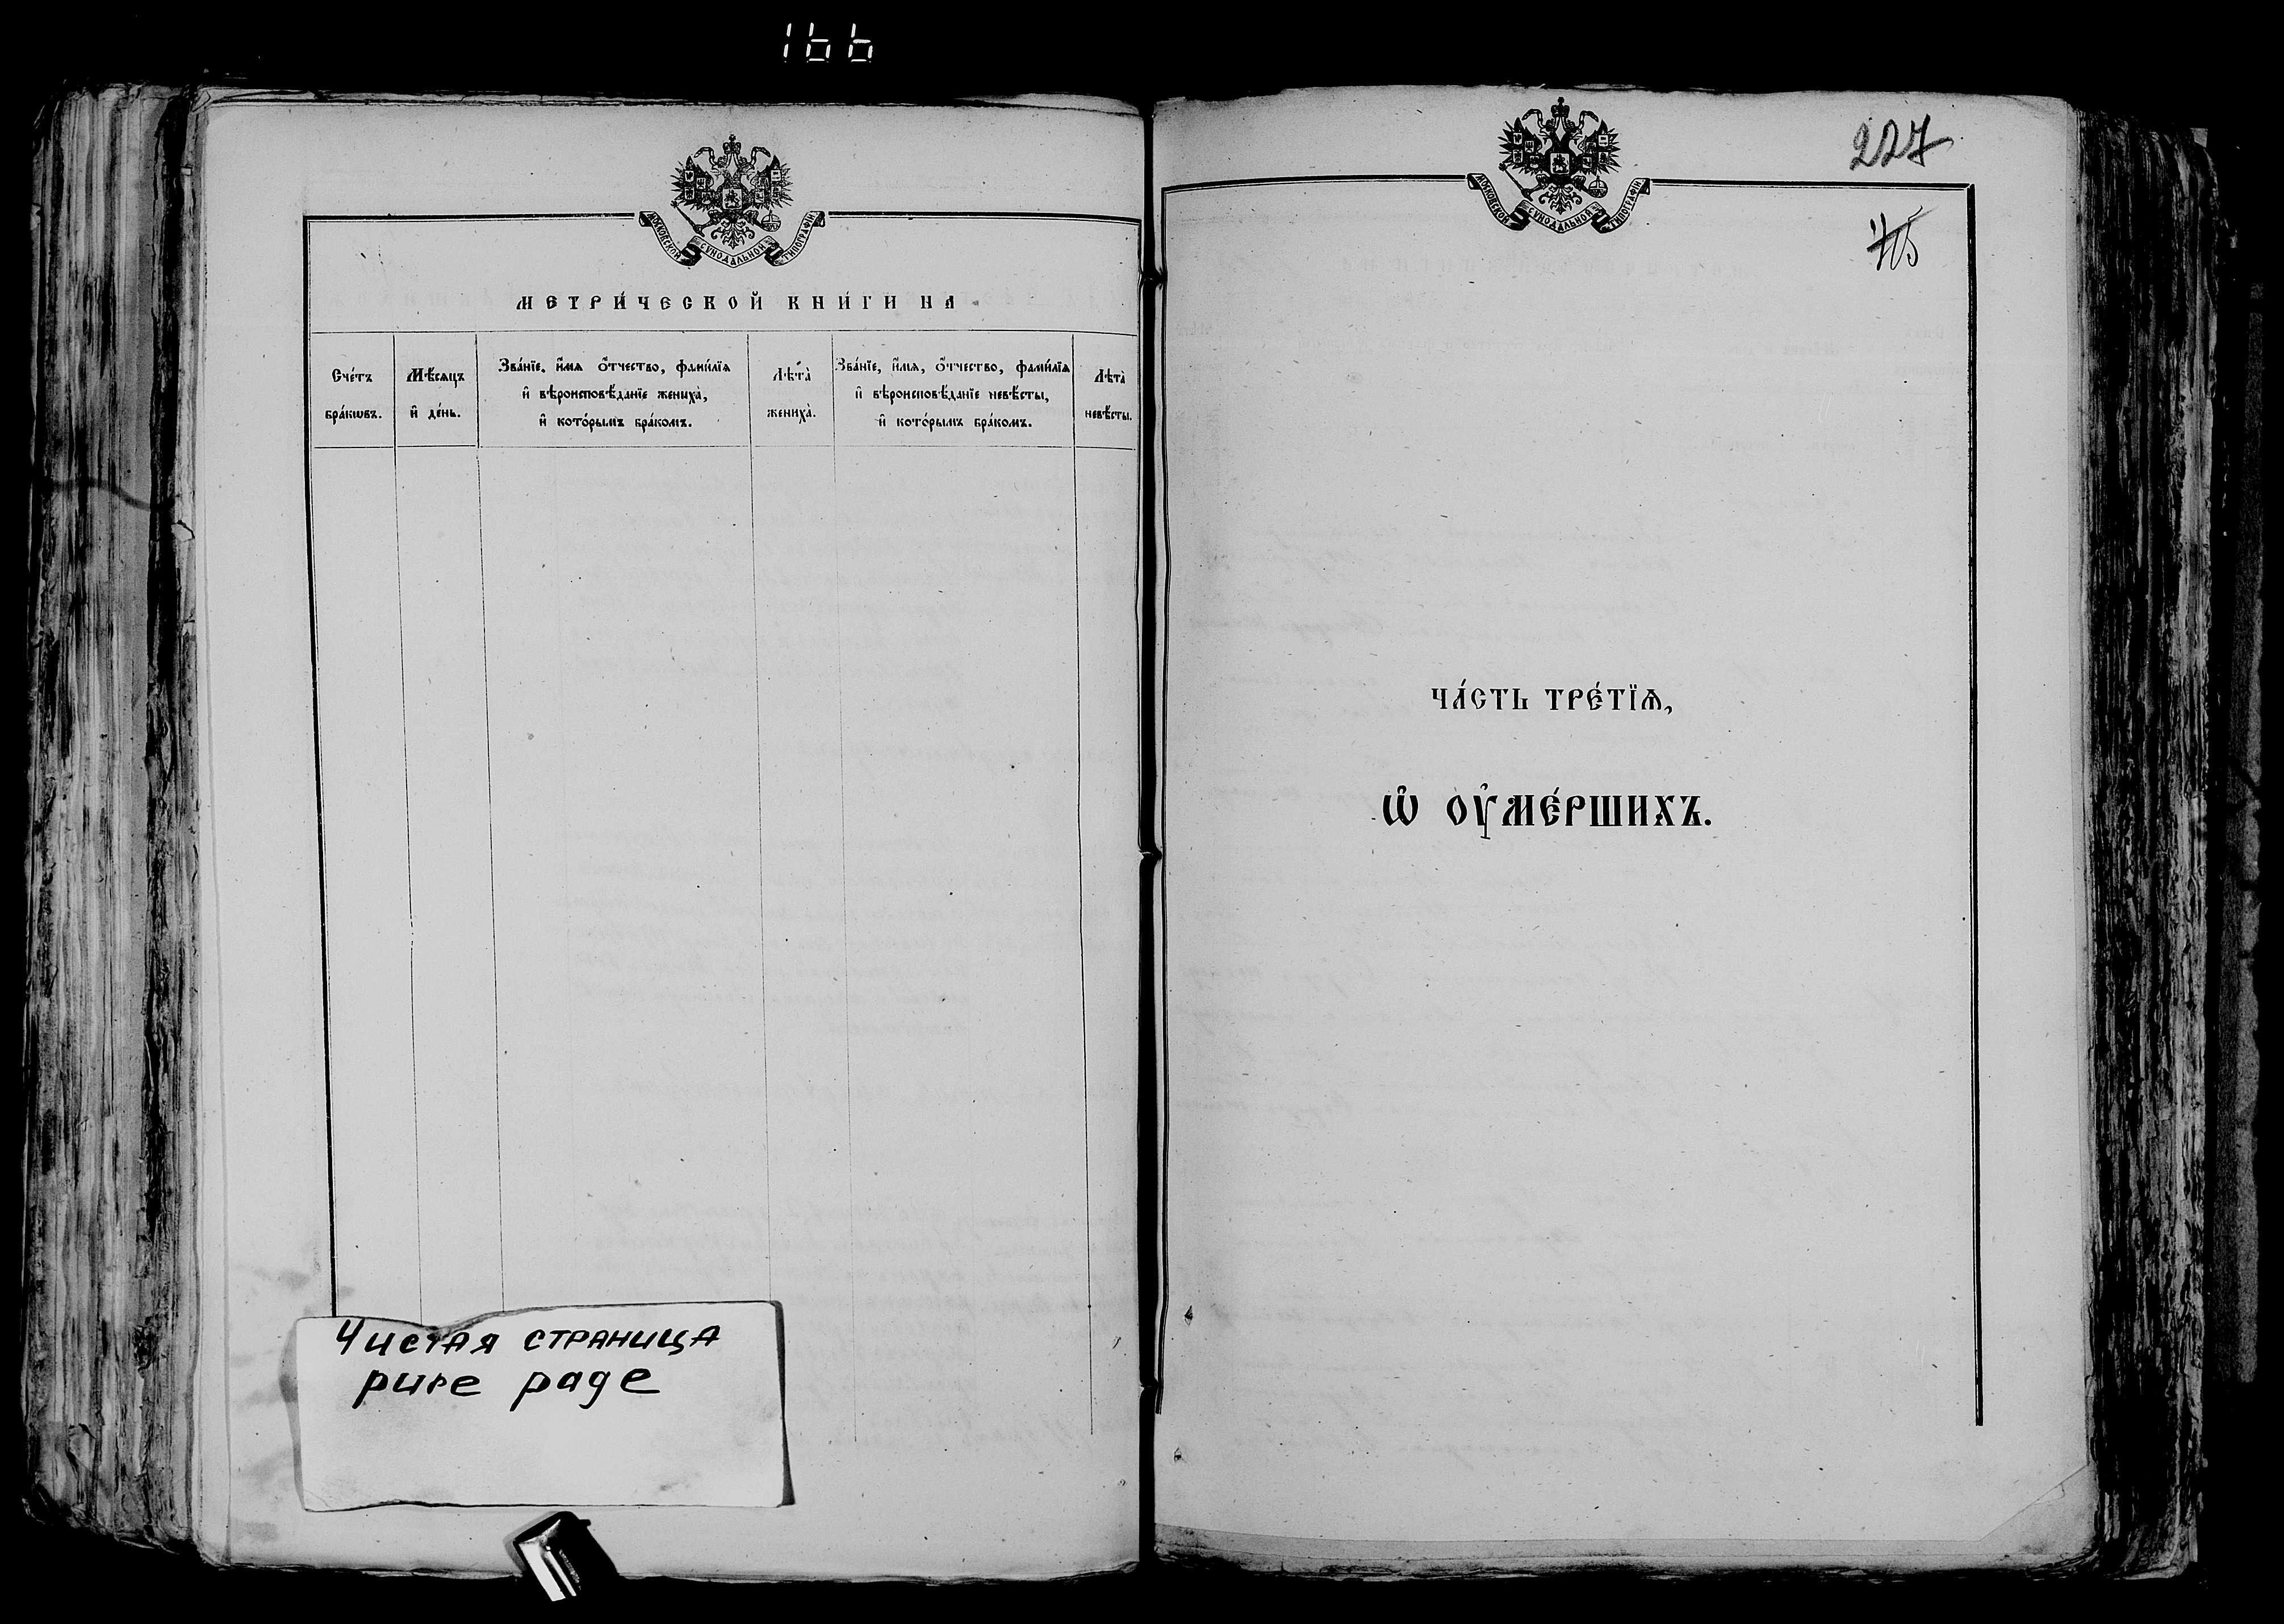 166
МОСКОВСКОЙ СѴНОДАЛЬНОЙ ТИПОГРАФІИ
МЕТРИ́ЧЕСКОЙ КНИ́ГИ НА
Сче́тъ бра́кѡвъ.
Мѣ́сяцъ и҆ де́нь.
Зва́нїе, и҆́мя ѻ҆́тчество, фами́лїя
и҆ вѣроисповѣ́данїе жениха̀,
и҆ кото́рымъ бра́комъ.
Лѣ́та̀ жениха̀.
Зва́нїе, и҆́мя, ѻ҆́тчество, фами́лїя
и҆ вѣроисповѣ́данїе невѣ́сты,
и҆ кото́рымъ бра́комъ.
Лѣта̀ невѣ́сты.
Чистая страница
pure page
МОСКОВСКОЙ СѴНОДАЛЬНОЙ ТИПОГРАФІИ
227
ЧА́СТЬ ТРЕ́ТЇѦ,
Ѽ ОУ҆МЕ́РШИХЪ.